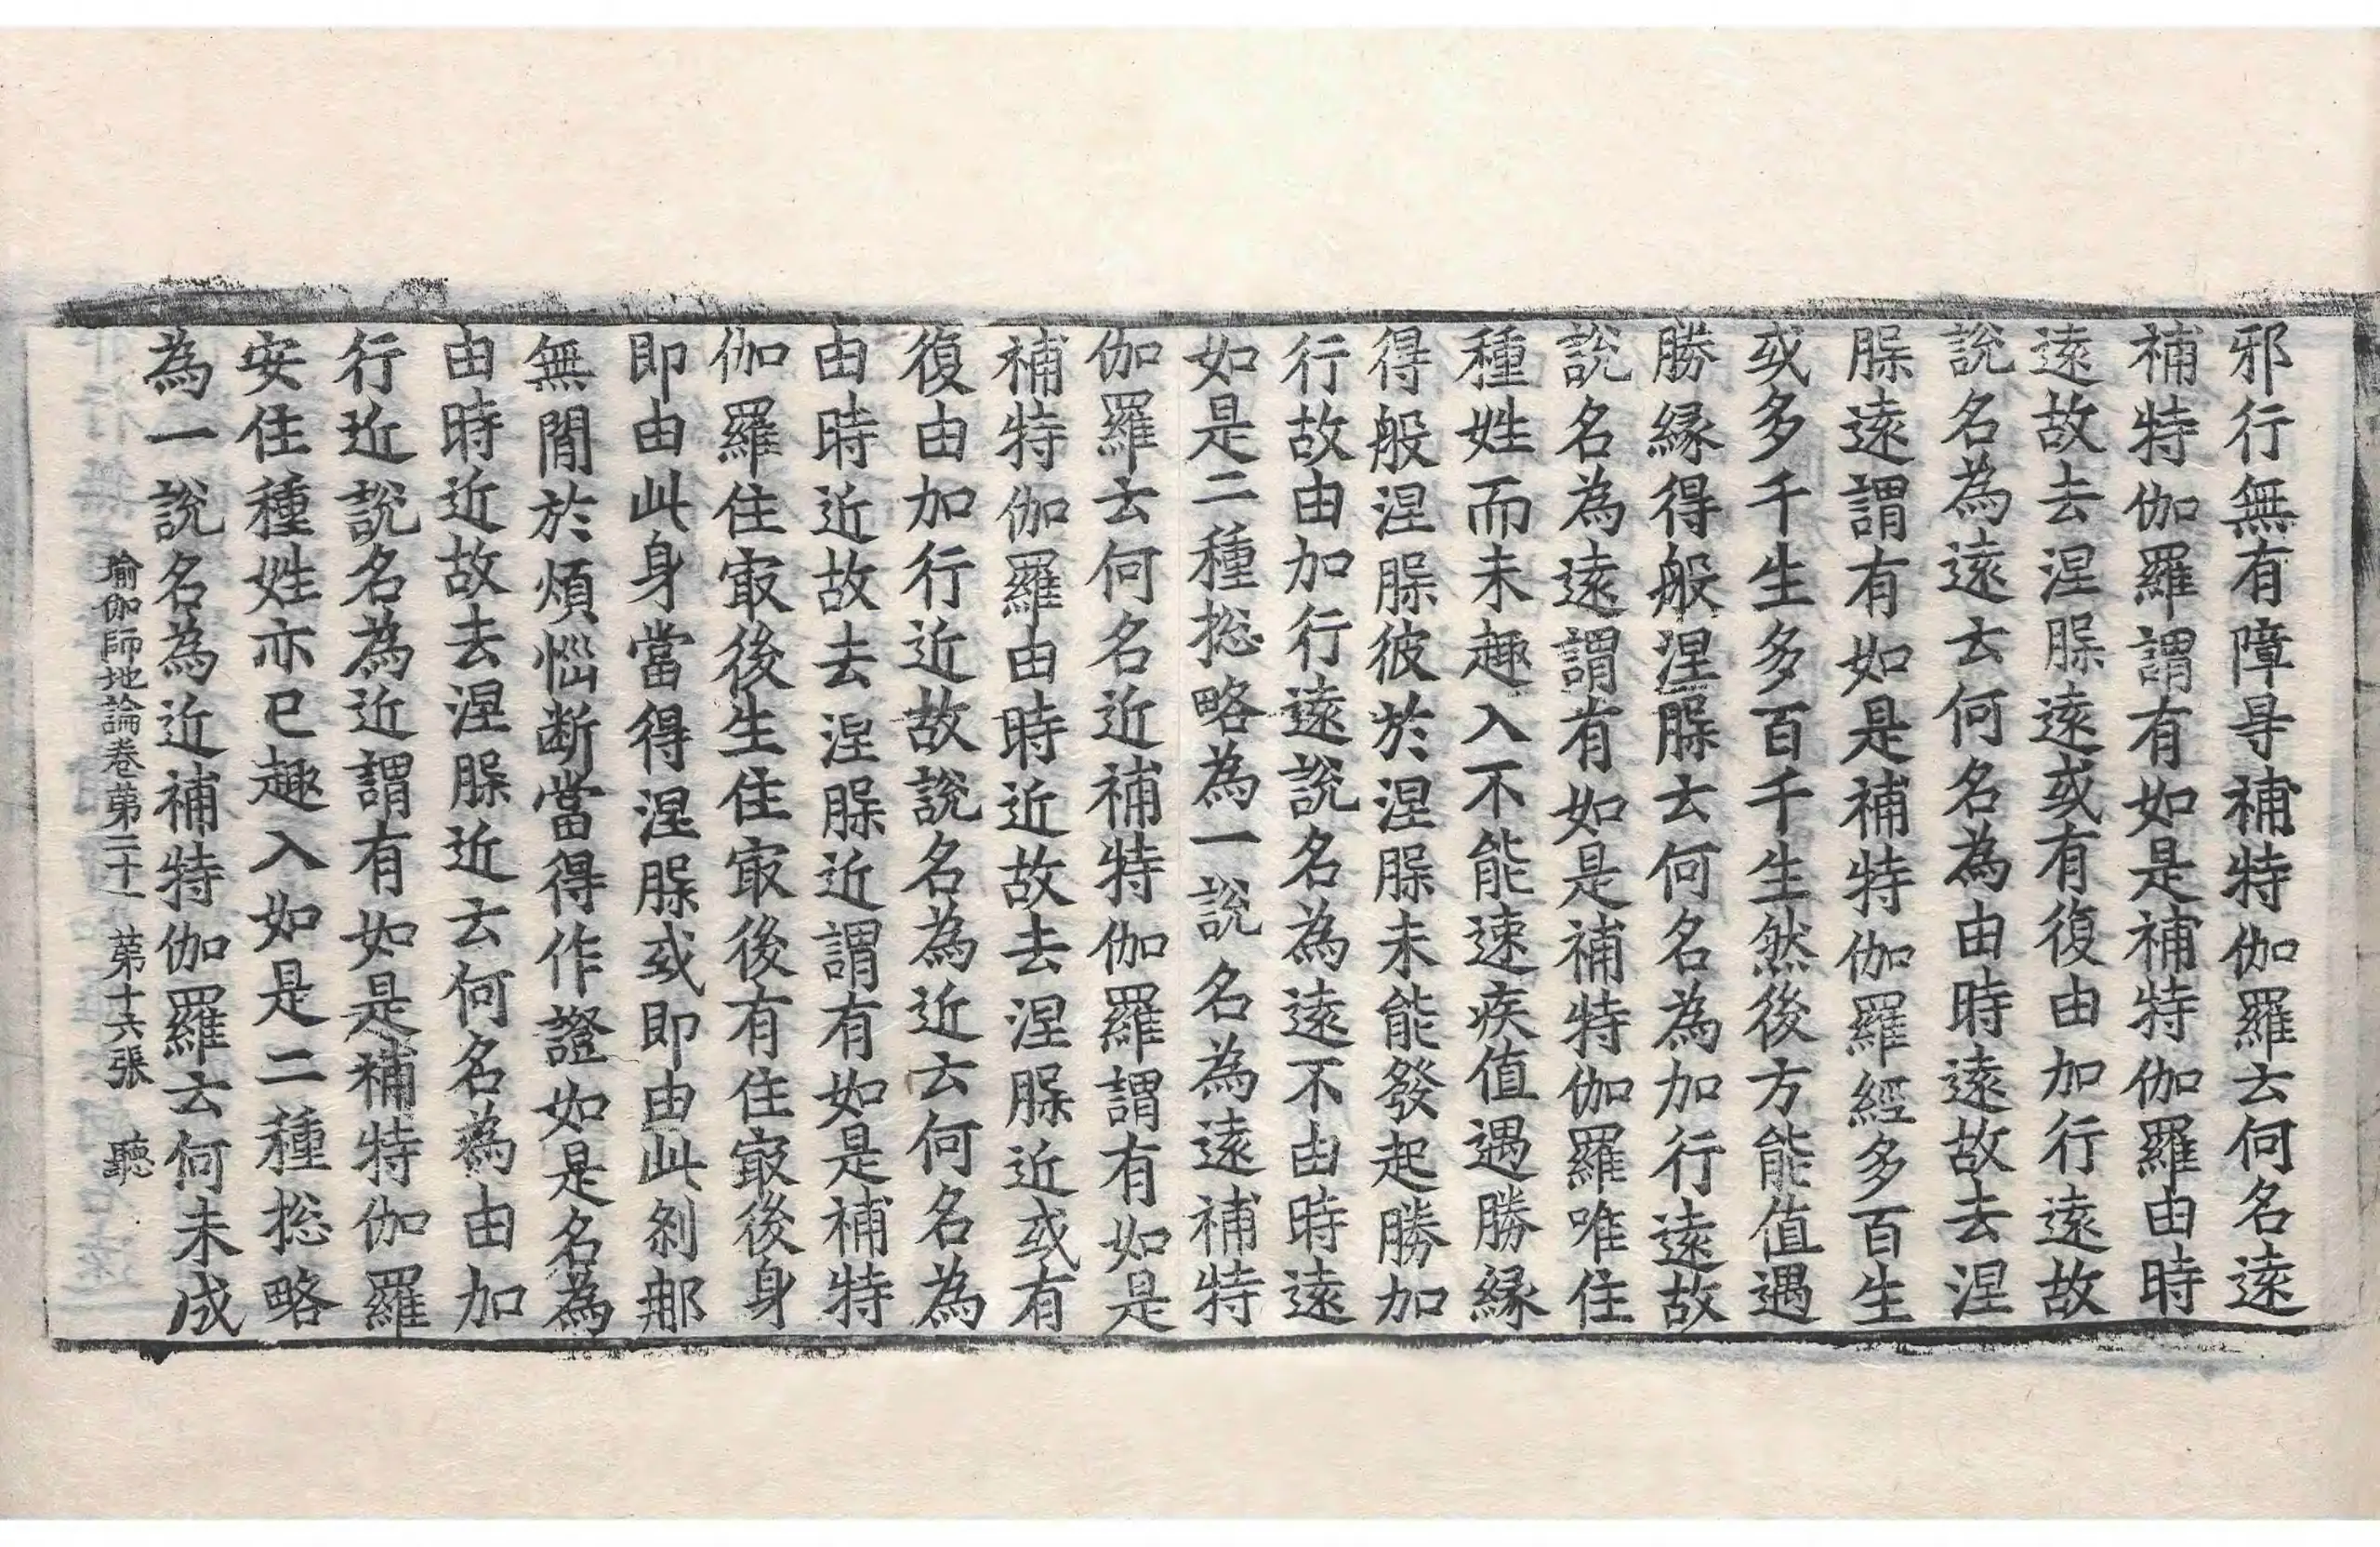 邪行無有障㝵補特伽羅云何名遠
補特伽羅謂有如是補特伽羅由時
遠故去涅脲遠或有復由加行遠故
說名為遠云何名為由時遠故去涅
脲遠謂有如是補特伽羅經多百生
或多千生多百千生然後方能值遇
勝縁得般涅脲云何名為加行遠故
說名為遠謂有如是補特伽羅唯住
種姓而未趣入不能速疾值遇勝縁
得般涅脲彼於涅脲未能發起勝加
行故由加行遠說名為遠不由時遠
如是二種捴略為一說名為遠補特
伽羅云何名近補特伽羅謂有如是
補特伽羅由時近故去涅脲近或有
復由加行近故說名為近云何名為
由時近故去涅脲近謂有如是補特
伽羅住㝡後生住㝡後有住㝡後身
即由此身當得涅脲或即由此剎那
無閒於煩惱断當得作證如是名為
由時近故去涅脲近云何名為由加
行近說名為近謂有如是補特伽羅
安住種姓亦已趣入如是二種捴略
為一說名為近補特伽羅云何未成
瑜伽師地論卷苐二十一 苐十六張 聽